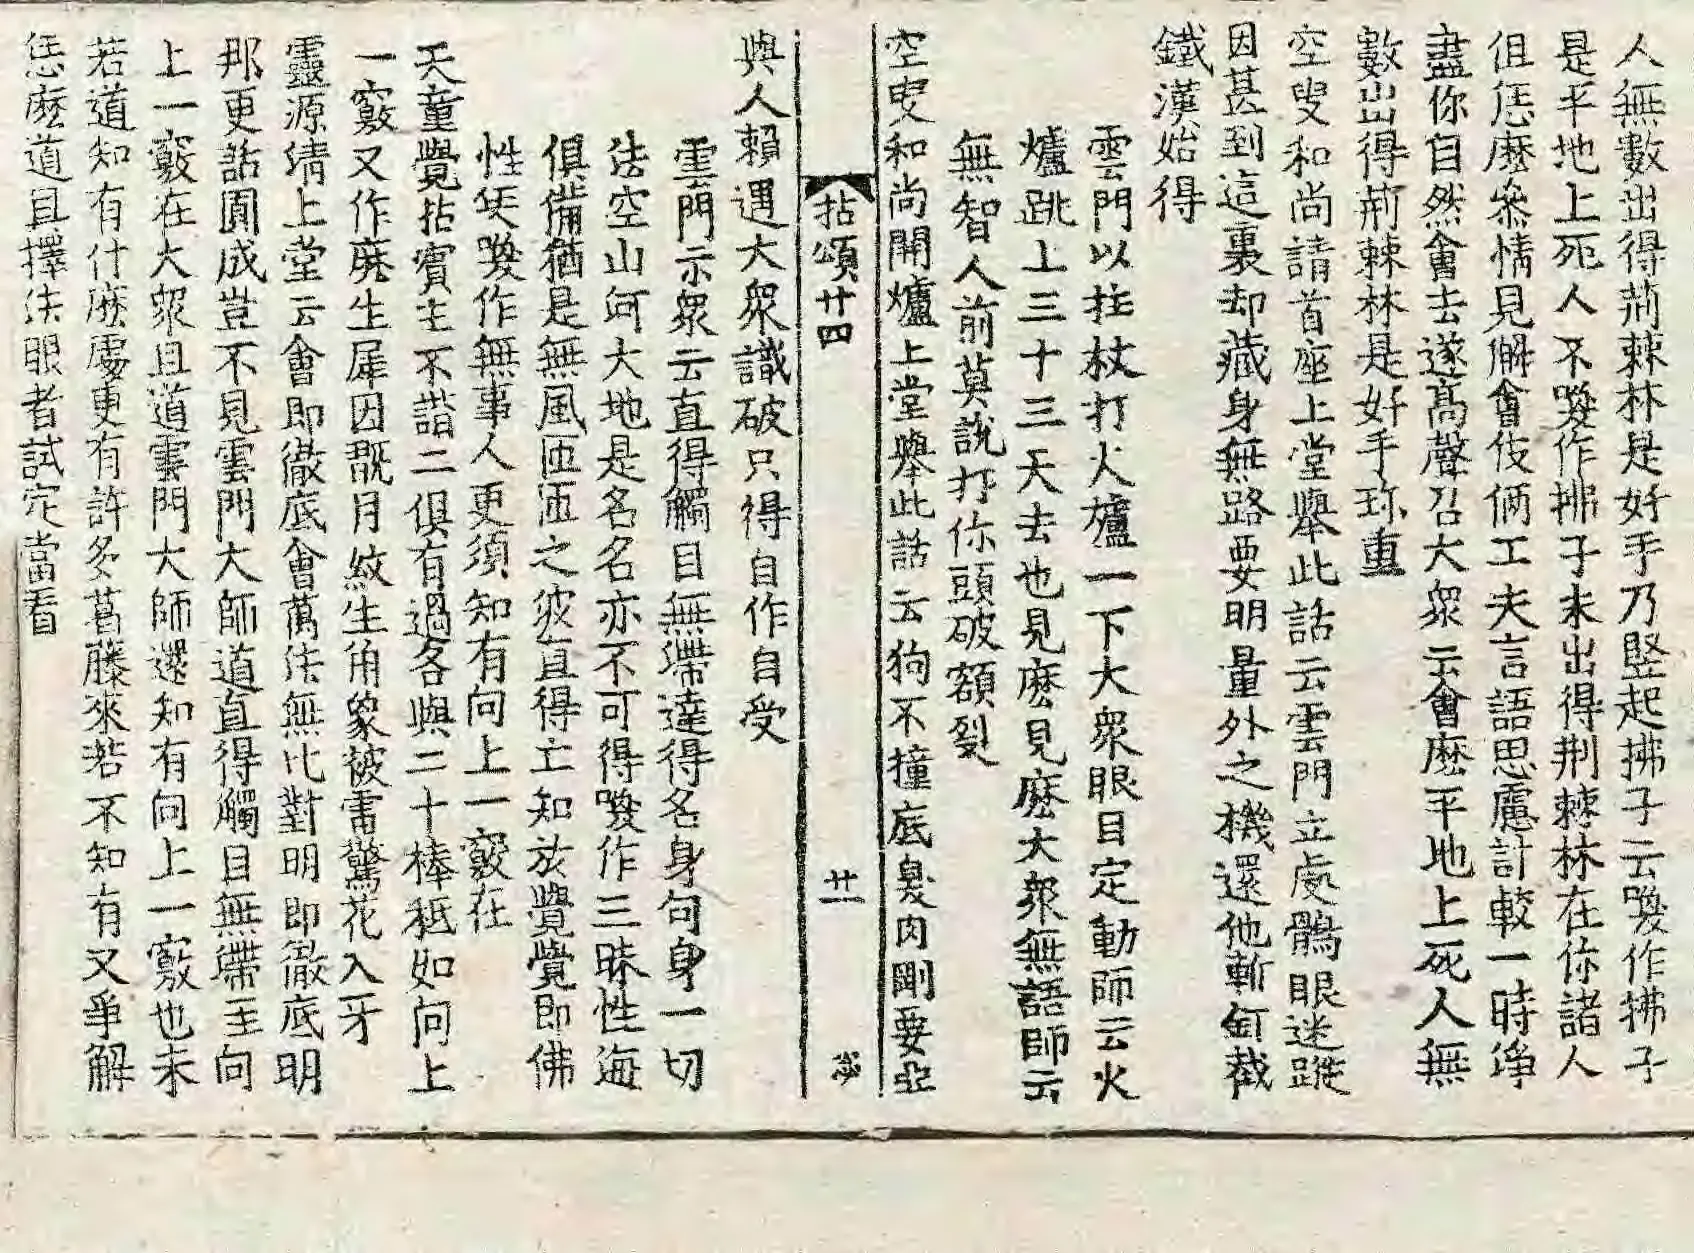 人無數出得荊棘林是好手乃竪起拂子云喚作拂子
是平地上死人不喚作拂子未出得荆棘林在你諸人
但恁麽叅情見解會伎倆工夫言語思慮計較一時埩
盡你自然會去遂髙聲召大衆云會麽平地上死人無
數出得荊棘林是好手珎重
空叟和尚請首座上堂舉此話云雲門立處鶻眼迷蹤
因甚到這裏却藏身無路要明量外之機還他斬釘截
鐵漢始得
雲門以拄杖打火爐一下大衆眼目定動師云火
爐跳上三十三天去也見麽見麽大衆無語師云
無智人前莫說打你頭破額裂
空叟和尚開爐上堂舉此話云狗不撞底臭肉剛要亞
拈頌廿四
廿一
與人賴遇大衆識破只得自作自受
雲門示衆云直得觸目無滯達得名身句身一切
法空山河大地是名名亦不可得喚作三昧性海
俱備猶是無風匝匝之波直得亡知於覺覺即佛
性矣喚作無事人更須知有向上一竅在
天童覺拈賓主不諧二俱有過各與二十棒秪如向上
一竅又作麽生犀因翫月紋生角象被雷驚花入牙
靈源清上堂云會即徹底會萬法無比對明即徹底明
那更話圓成豈不見雲門大師道直得觸目無滯至向
上一竅在大衆且道雲門大師還知有向上一竅也未
若道知有什麽處更有許多葛藤來若不知有又爭解
恁麽道且擇法眼者試定當看